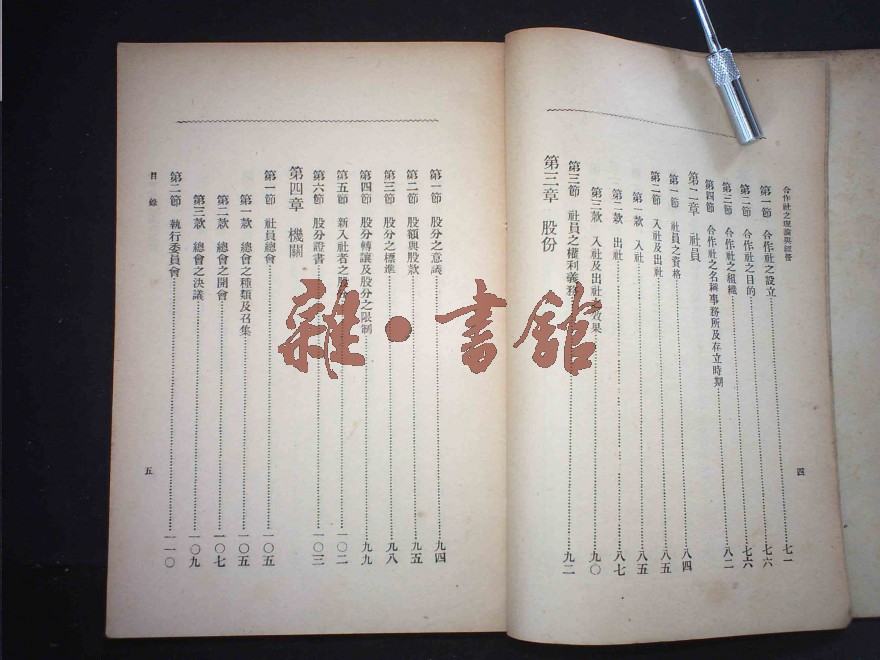 合作社之理論與經營
第一節 合作社之設立……七一
第二節 合作社之目的……七六
第三節 合作社之組織……七六
第四節 合作社之名稱事務所及存立時期……八二
第二章 社員
第一節 社員之資格……八四
第二節 入社及出社……八五
第一款 入社……八五
第二款 出社……八七
第三款 入社及出社之效果……九〇
第三節 社員之權利義務……九二
第三章 股份
四
第一節 股分之意議……九四
第二節 股額與股款……九五
第三節 股分之標準……九八
第四節 股分轉讓及股分之限制……九九
第五節 新入社者之股……一〇二
第六節 股分證書……一〇三
第四章 機關
第一節 社員總會……一〇五
第一款 總會之種類及召集……一〇五
第二款 總會之開會……一〇七
第三款 總會之決議……一〇九
第二節 執行委員會……一一〇
目錄
五
雜·書館